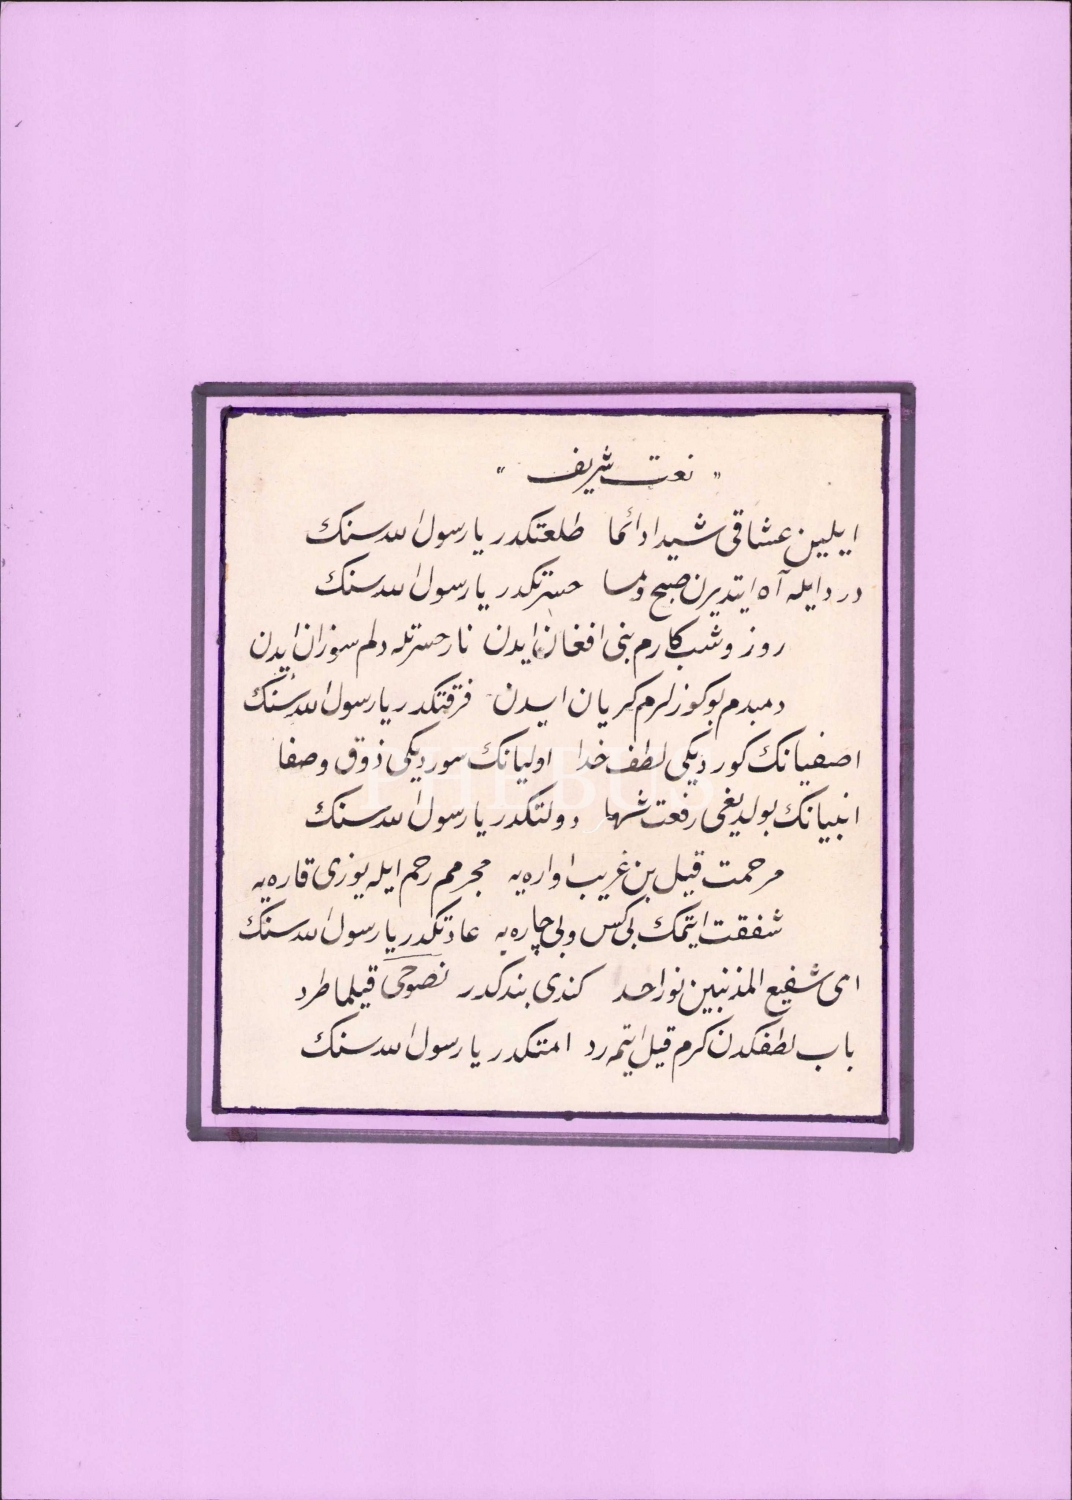 „ نعت شریف “
ایلین عشاقی شیدا دائما طلعتکدر یا رسول الله سنک
درد ایله آه ایتدیرن صبح و مسا حسرتکدر یا رسول الله سنک
روز و شب کارم بنی افغان ایدن نار حسرتله دلم سوزان ایدن
دمبدم بو کوزلرم کریان ایدن فرقتکدر یا رسول الله سنک
اصفیانک کوردیکی لطف خدا اولیانک سوردیکی ذوق و صفا
PHEBUS
انبیانک بولدیغی رفعت شها دولتکدر یا رسول الله سنک
مرحمت قیل بن غریب اواره یه مجرمم رحم ایله یوزی قاره یه
شفقت ایتمک بی کس و بی چاره یه عادتکدر یا رسول الله سنک
ای شفیع المذنبین نور احد کندی بندکدر نصوحی قیلما طرد
باب لطفکدن کرم قیل ایتمه رد امتکدر یا رسول الله سنک